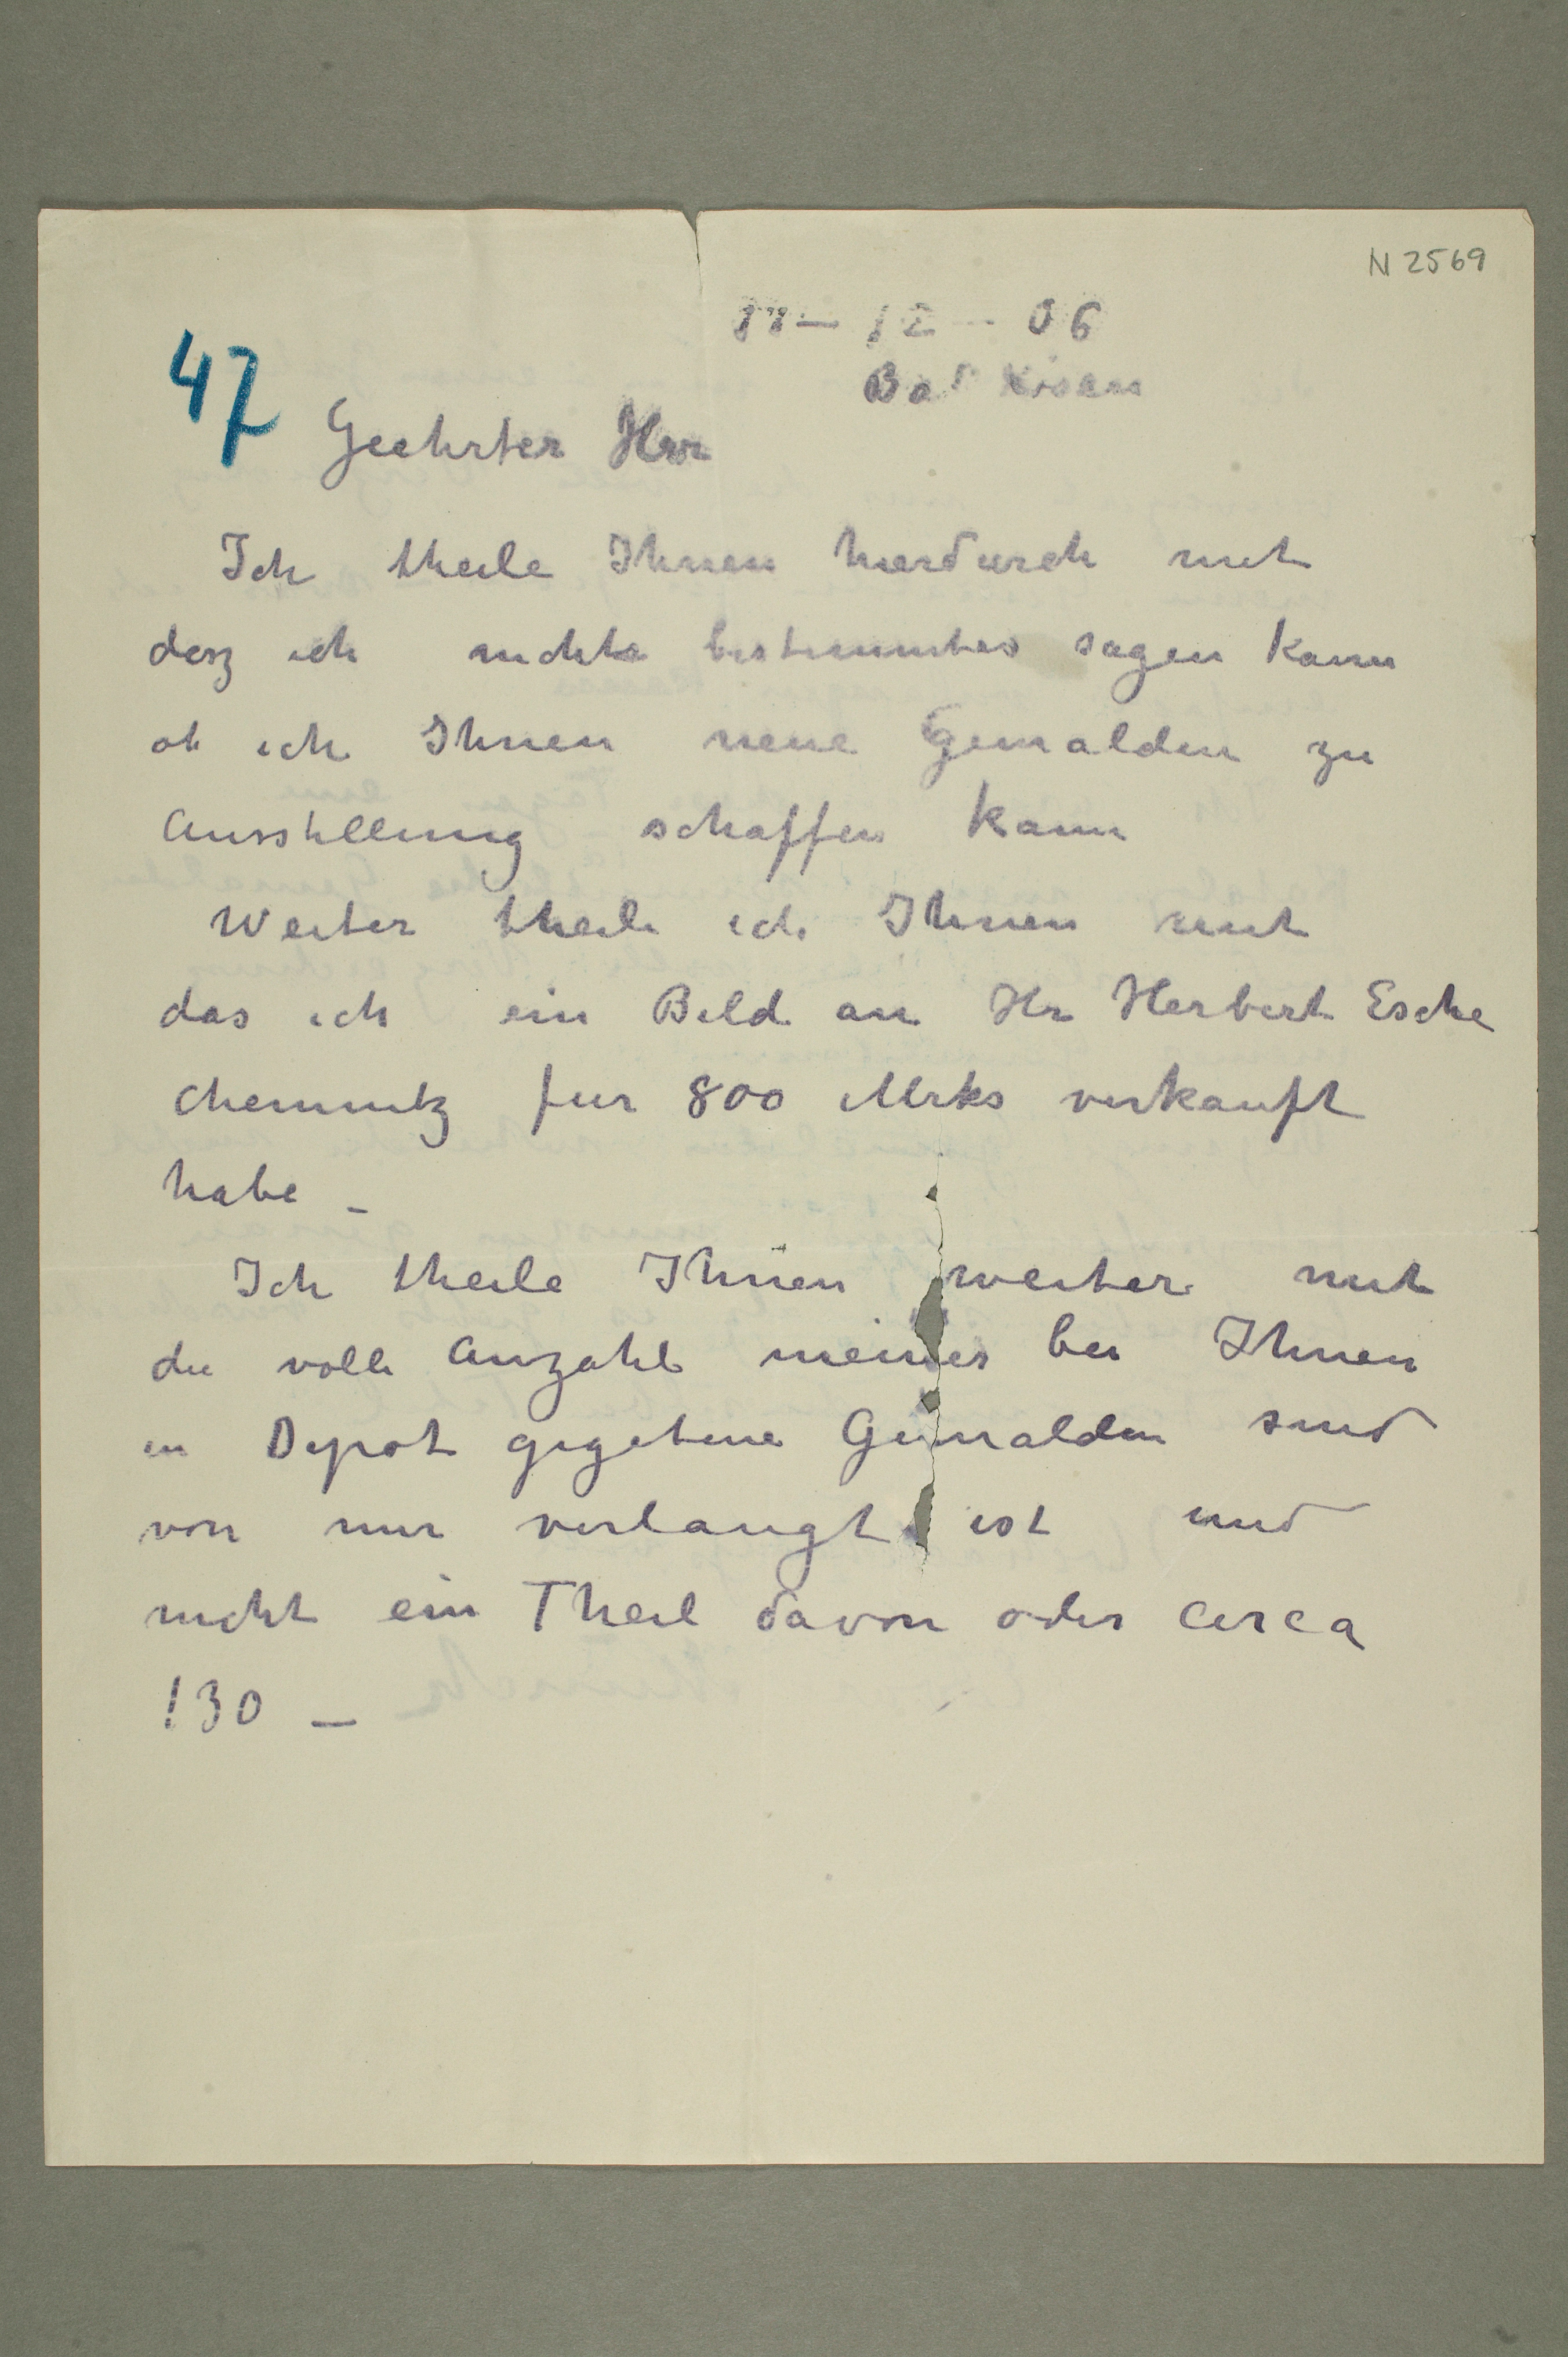 N 2569
11 – 12 – 06
Bad Kösen
47
Geehrter Herr
Ich theile Ihnen hierdurch mit
dasz ich nichts bestimmtes sagen kann
ob ich Ihnen neue Gemalden zu
Ausstellung schaffen kann
Weiter theile ich Ihnen mit
das ich ein Bild an Hr Herbert Esche
Chemnitz für 800 Mrks verkauft
habe –
Ich theile Ihnen weiter mit
die volle Anzahl meines bei Ihnen
in Depot gegebene Gemalden sind
von mir verlangt ist und
nicht ein Theil davon oder circa
130 –